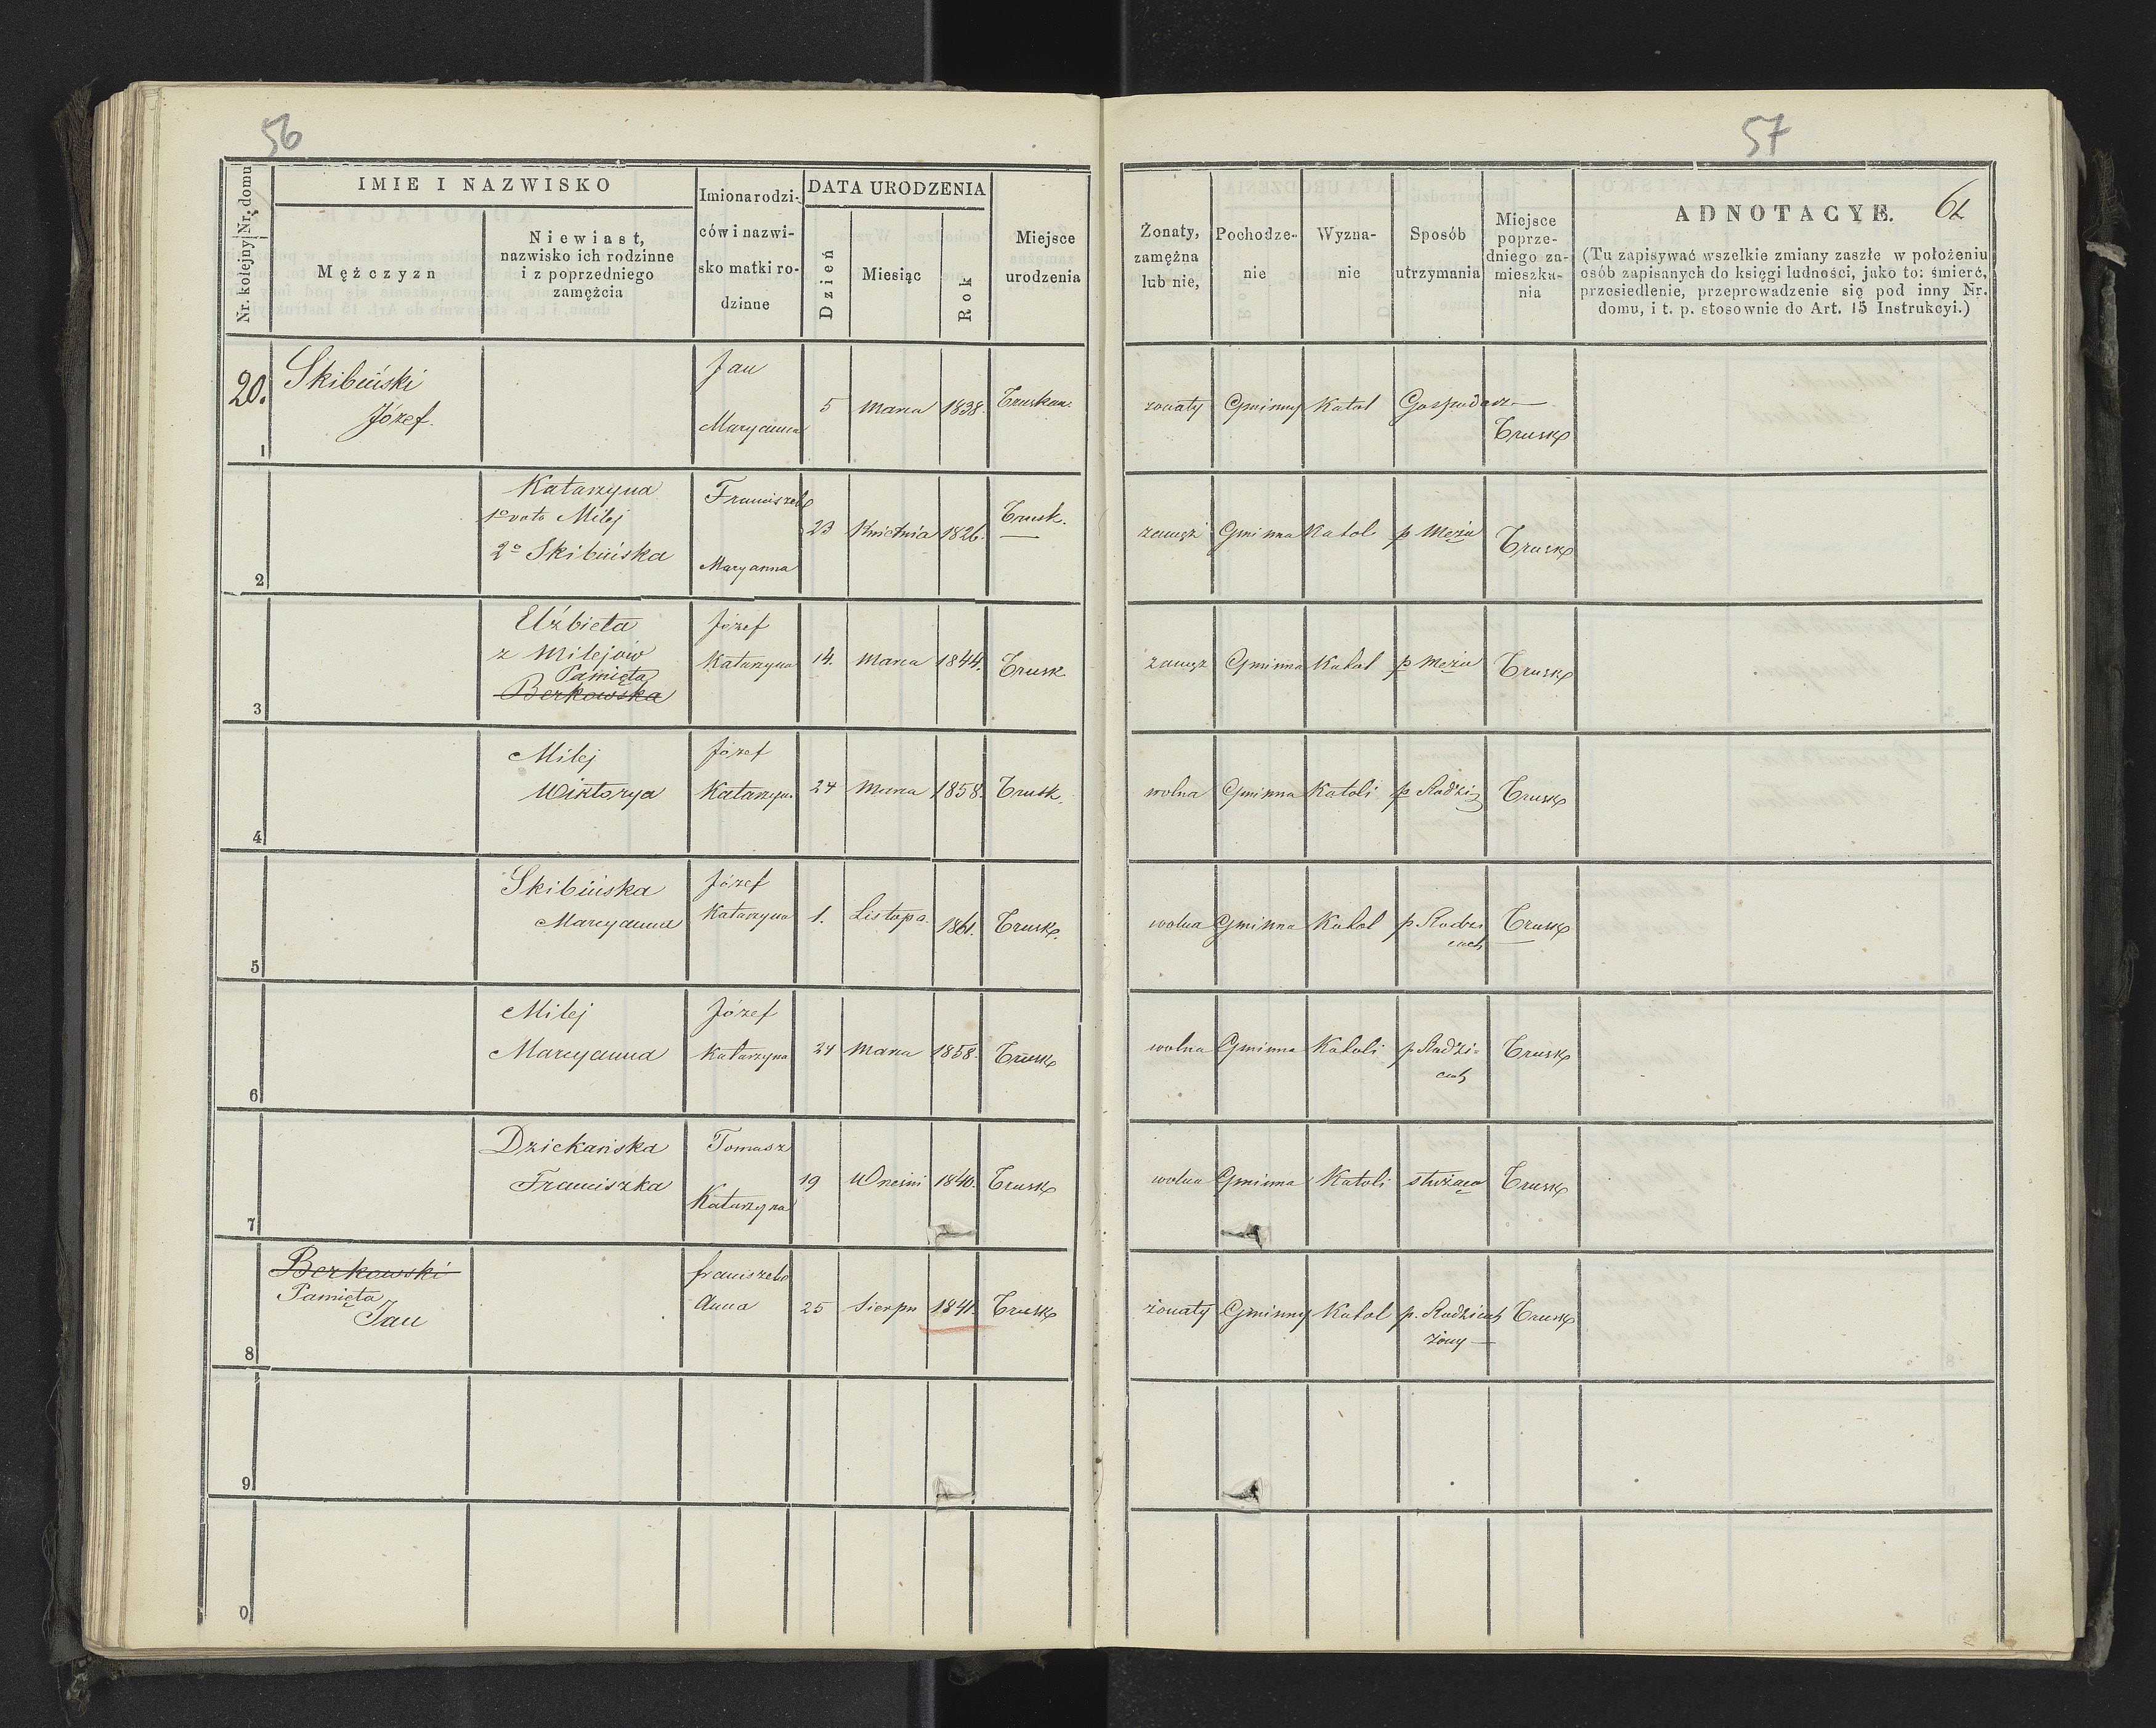 56
57
62
Nr. kolejny Nr. domu
IMIE I NAZWISKO
Mężczyzn
Niewiast,
nazwisko ich rodzinne
i z poprzedniego
zamężcia
Imiona rodzi-
ców i nazwi-
sko matki ro-
dzinne
DATA URODZENIA
Dzień
Miesiąc
Rok
Miejsce
urodzenia
Żonaty,
zamężna
lub nie,
Pochodze-
nie
Wyzna-
nie
Sposób
utrzymania
Miejsce
poprze-
dniego za-
mieszka-
nia
ADNOTACYE.
(Tu zapisywać wszelkie zmiany zaszłe w położeniu
osób zapisanych do księgi ludności, jako to: śmierć,
przesiedlenie, przeprowadzenie się pod inny Nr.
domu, i t. p. stosownie do Art. 15 Instrukcyi.)
20.
1
Skibiński
Józef.
Jan
Maryanna
5 Marca 1838. Truskaw.
żonaty Gminny Katol Gospodarz
Trusk
2
Katarzyna
1º voto Milej
2º Skibińska
Franciszek
Maryanna
23 Kwietnia 1826. Trusk.
zamęż Gminna Katol p Mężu Trusk
3
Elżbieta
z Milejów
Pamięta
Berkowska
Józef
Katarzyna
14. Marca 1844. Trusk
zamęż Gminna Katol p Mężu Trusk
4
Milej
Wiktorya
Józef
Katarzyn.
24 Marca 1858. Trusk.
wolna Gminna Katoli p Rodzi Trusk
5
Skibińska
Maryanna
Józef
Katarzyna
1. Listopa. 1861. Trusk.
wolna Gminna Katol p Rodzi
cach
Trusk
6
Milej
Maryanna
Józef
Katarzyna
24 Marca 1858. Trusk
wolna Gminna Katoli p Rodzi-
cach
Trusk
7
Dziekańska
Franciszka
Tomasz
Katarzyna
19 Wrześni 1840. Trusk
wolna Gminna Katoli służąca Trusk
8
Berkowski
Pamięta
Jan
franciszek
Anna
25 Sierpn 1841. Trusk
żonaty Gminny Katol p. Rodzicach
żony
Trusk
9
0